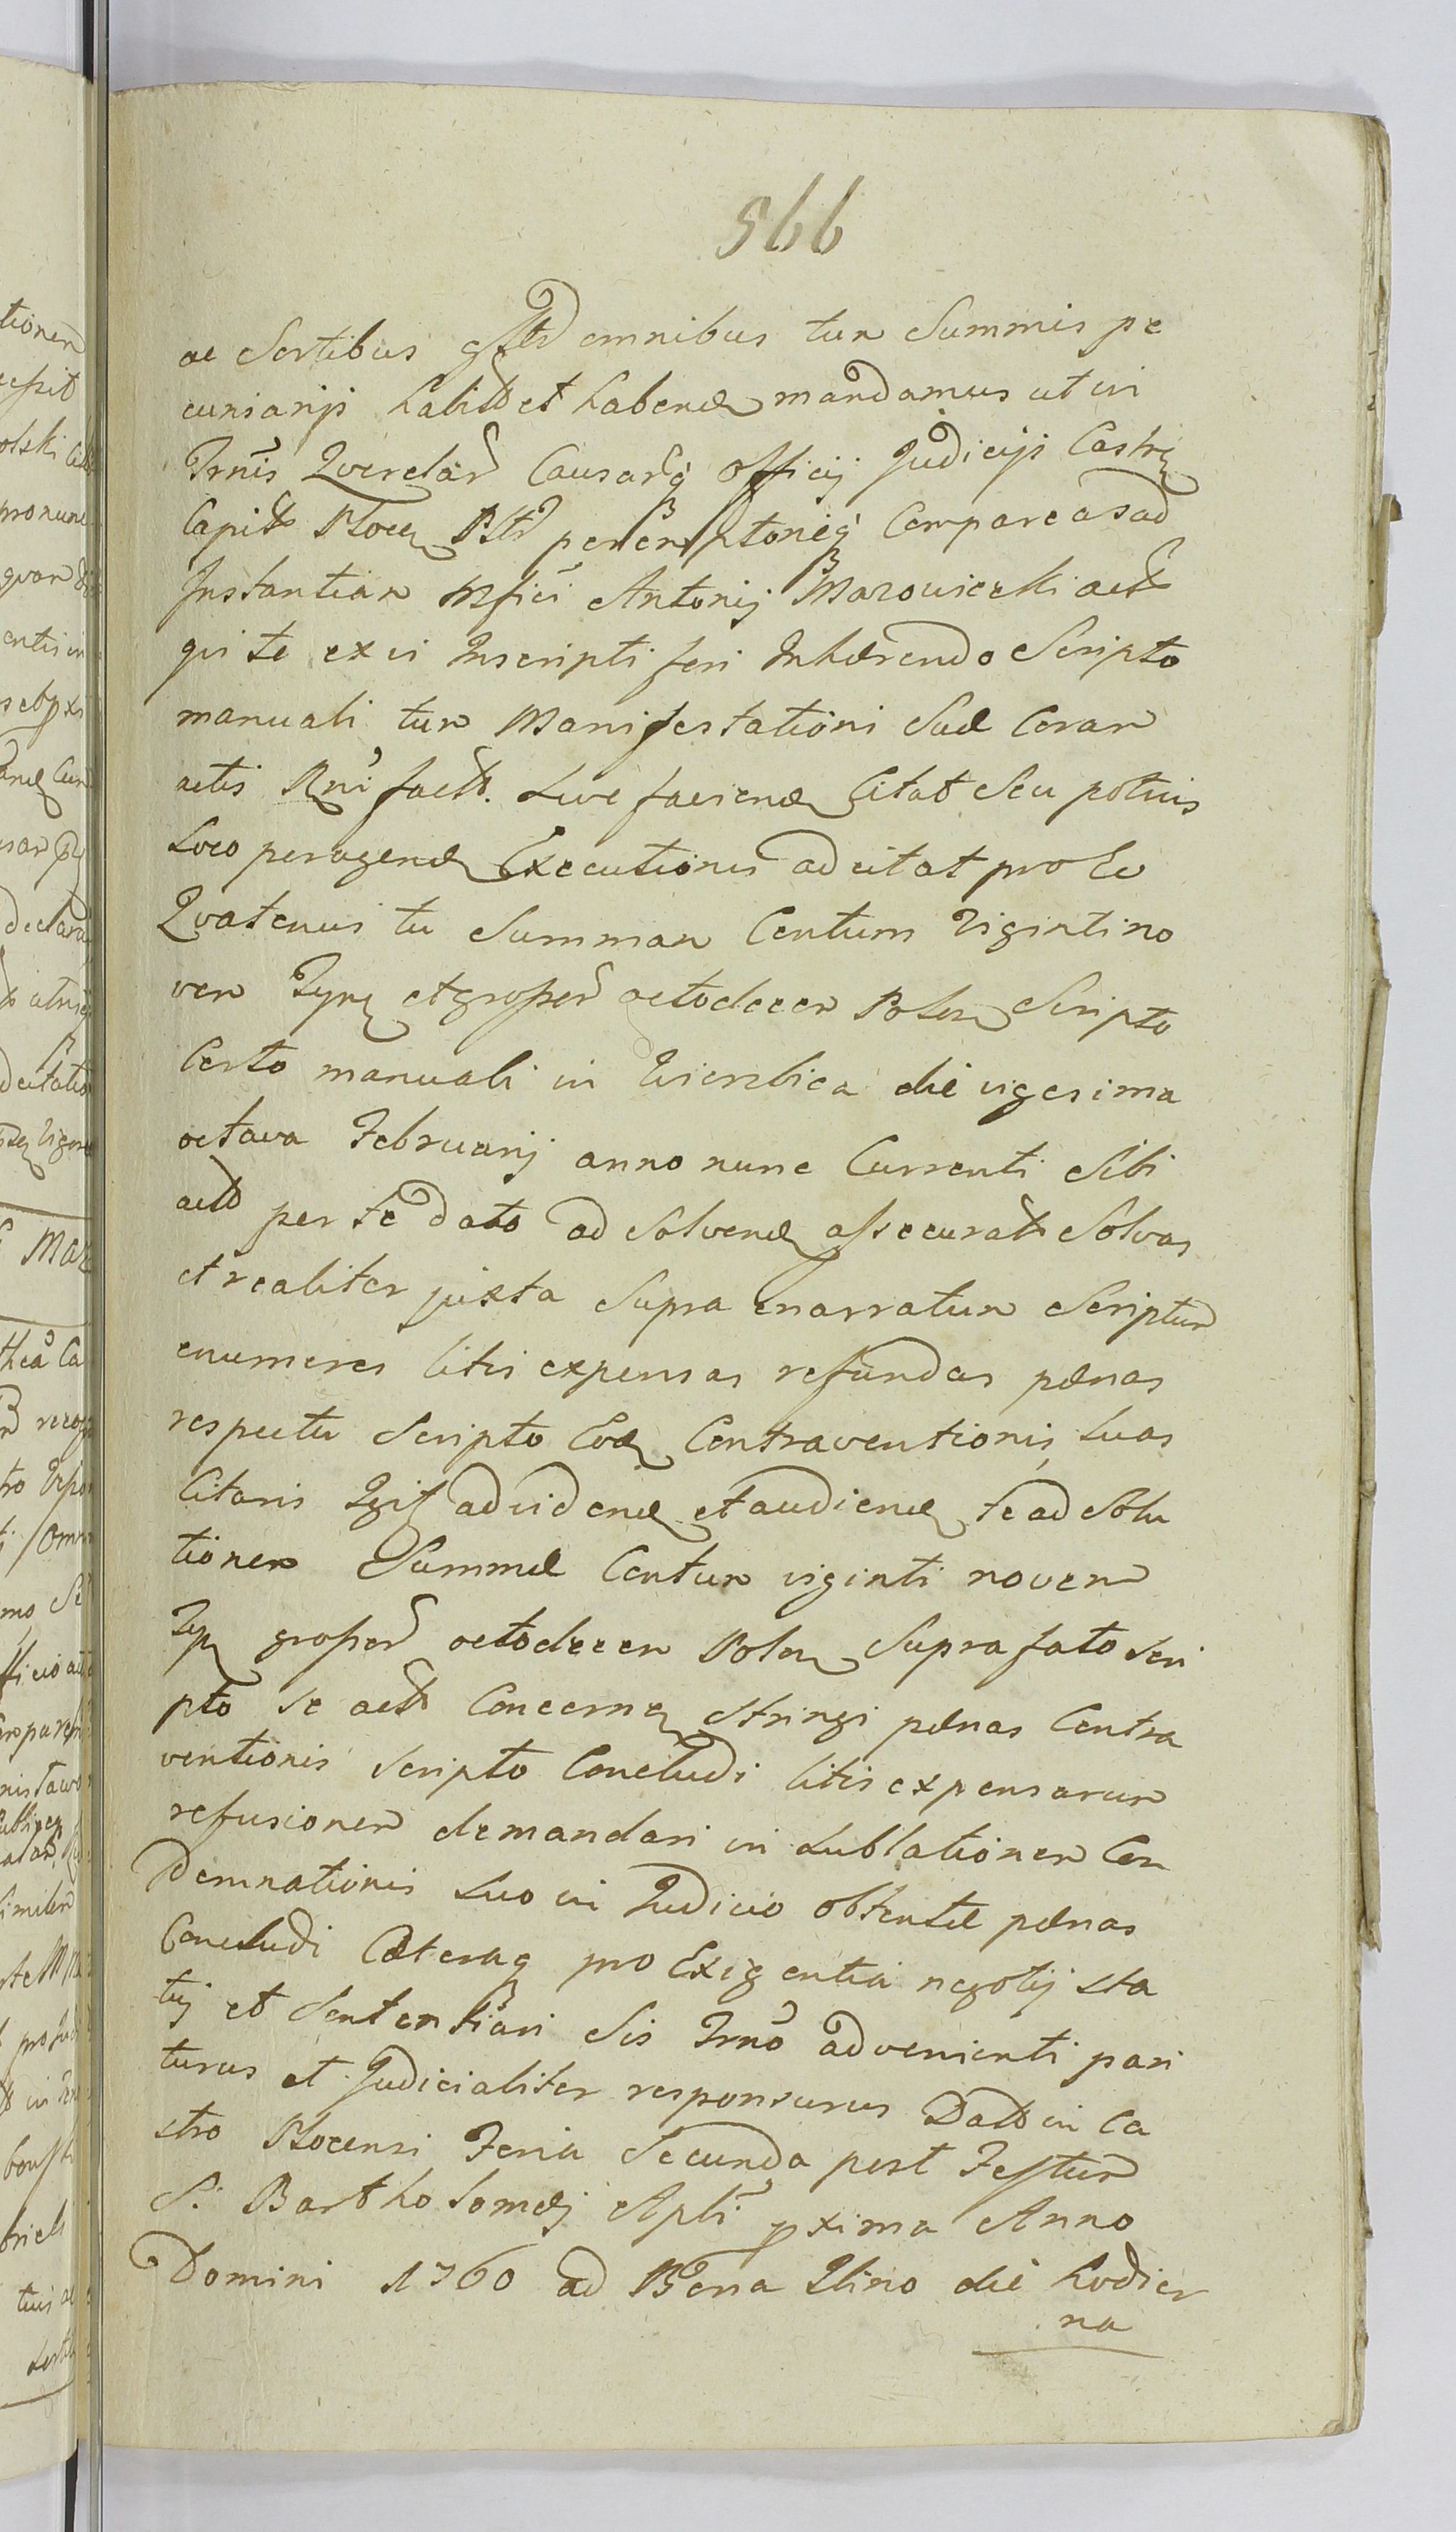 566
ac Sortibus omnibus tum Summis pe
cuniarijs habitis et habend mandamus ut in
Trnis Querelar Causarq Officij Judicijs Castr
Capit Plocen peremptorieq Compareas ad
Instantiam Mfici Antonij Mazowiecki act
qui te ex vi Inscripti feri Inhærendo Scripto
manuali tum Manifestationi Suæ Coram
actis fact. sive faciend Citat Seu potius
Loco peragend Executionis adcitat pro Eo
Quatenus tu Summam Centum Viginti no
vem et grossor octodecem Polon Scripto
Certo manuali in Wierzbica die vigesima
octava Februarij anno nunc Currenti Sibi
act per te dato ad Solvend assecurat Solvas
et realiter juxta Supra enarratum Scriptum
enumeres litis expensas refundas pænas
respectu Scripto Contraventionis luas
Citaris ad vidend et audiend te ad Solu
tionem Summæ Centum viginti novem
grossor octodecem Polon Suprafato Scri
pto se act Concernen stringi pænas Contra
ventionis Scripto Concludi litis expensarum
refusionem demandari in sublationem Con
demnationis Suo in Judicio obtentæ pænas
Concludi Cæteraq pro Exigentia negotij sta
tui et Sententiari Sis Trno advenienti pari
turus et Judicialiter responsurus Datt in Ca
stro Plocensi Feria Secunda post Festum
S. Bartholomæj Apli pxima Anno
Domini 1760 ad die hodier
na